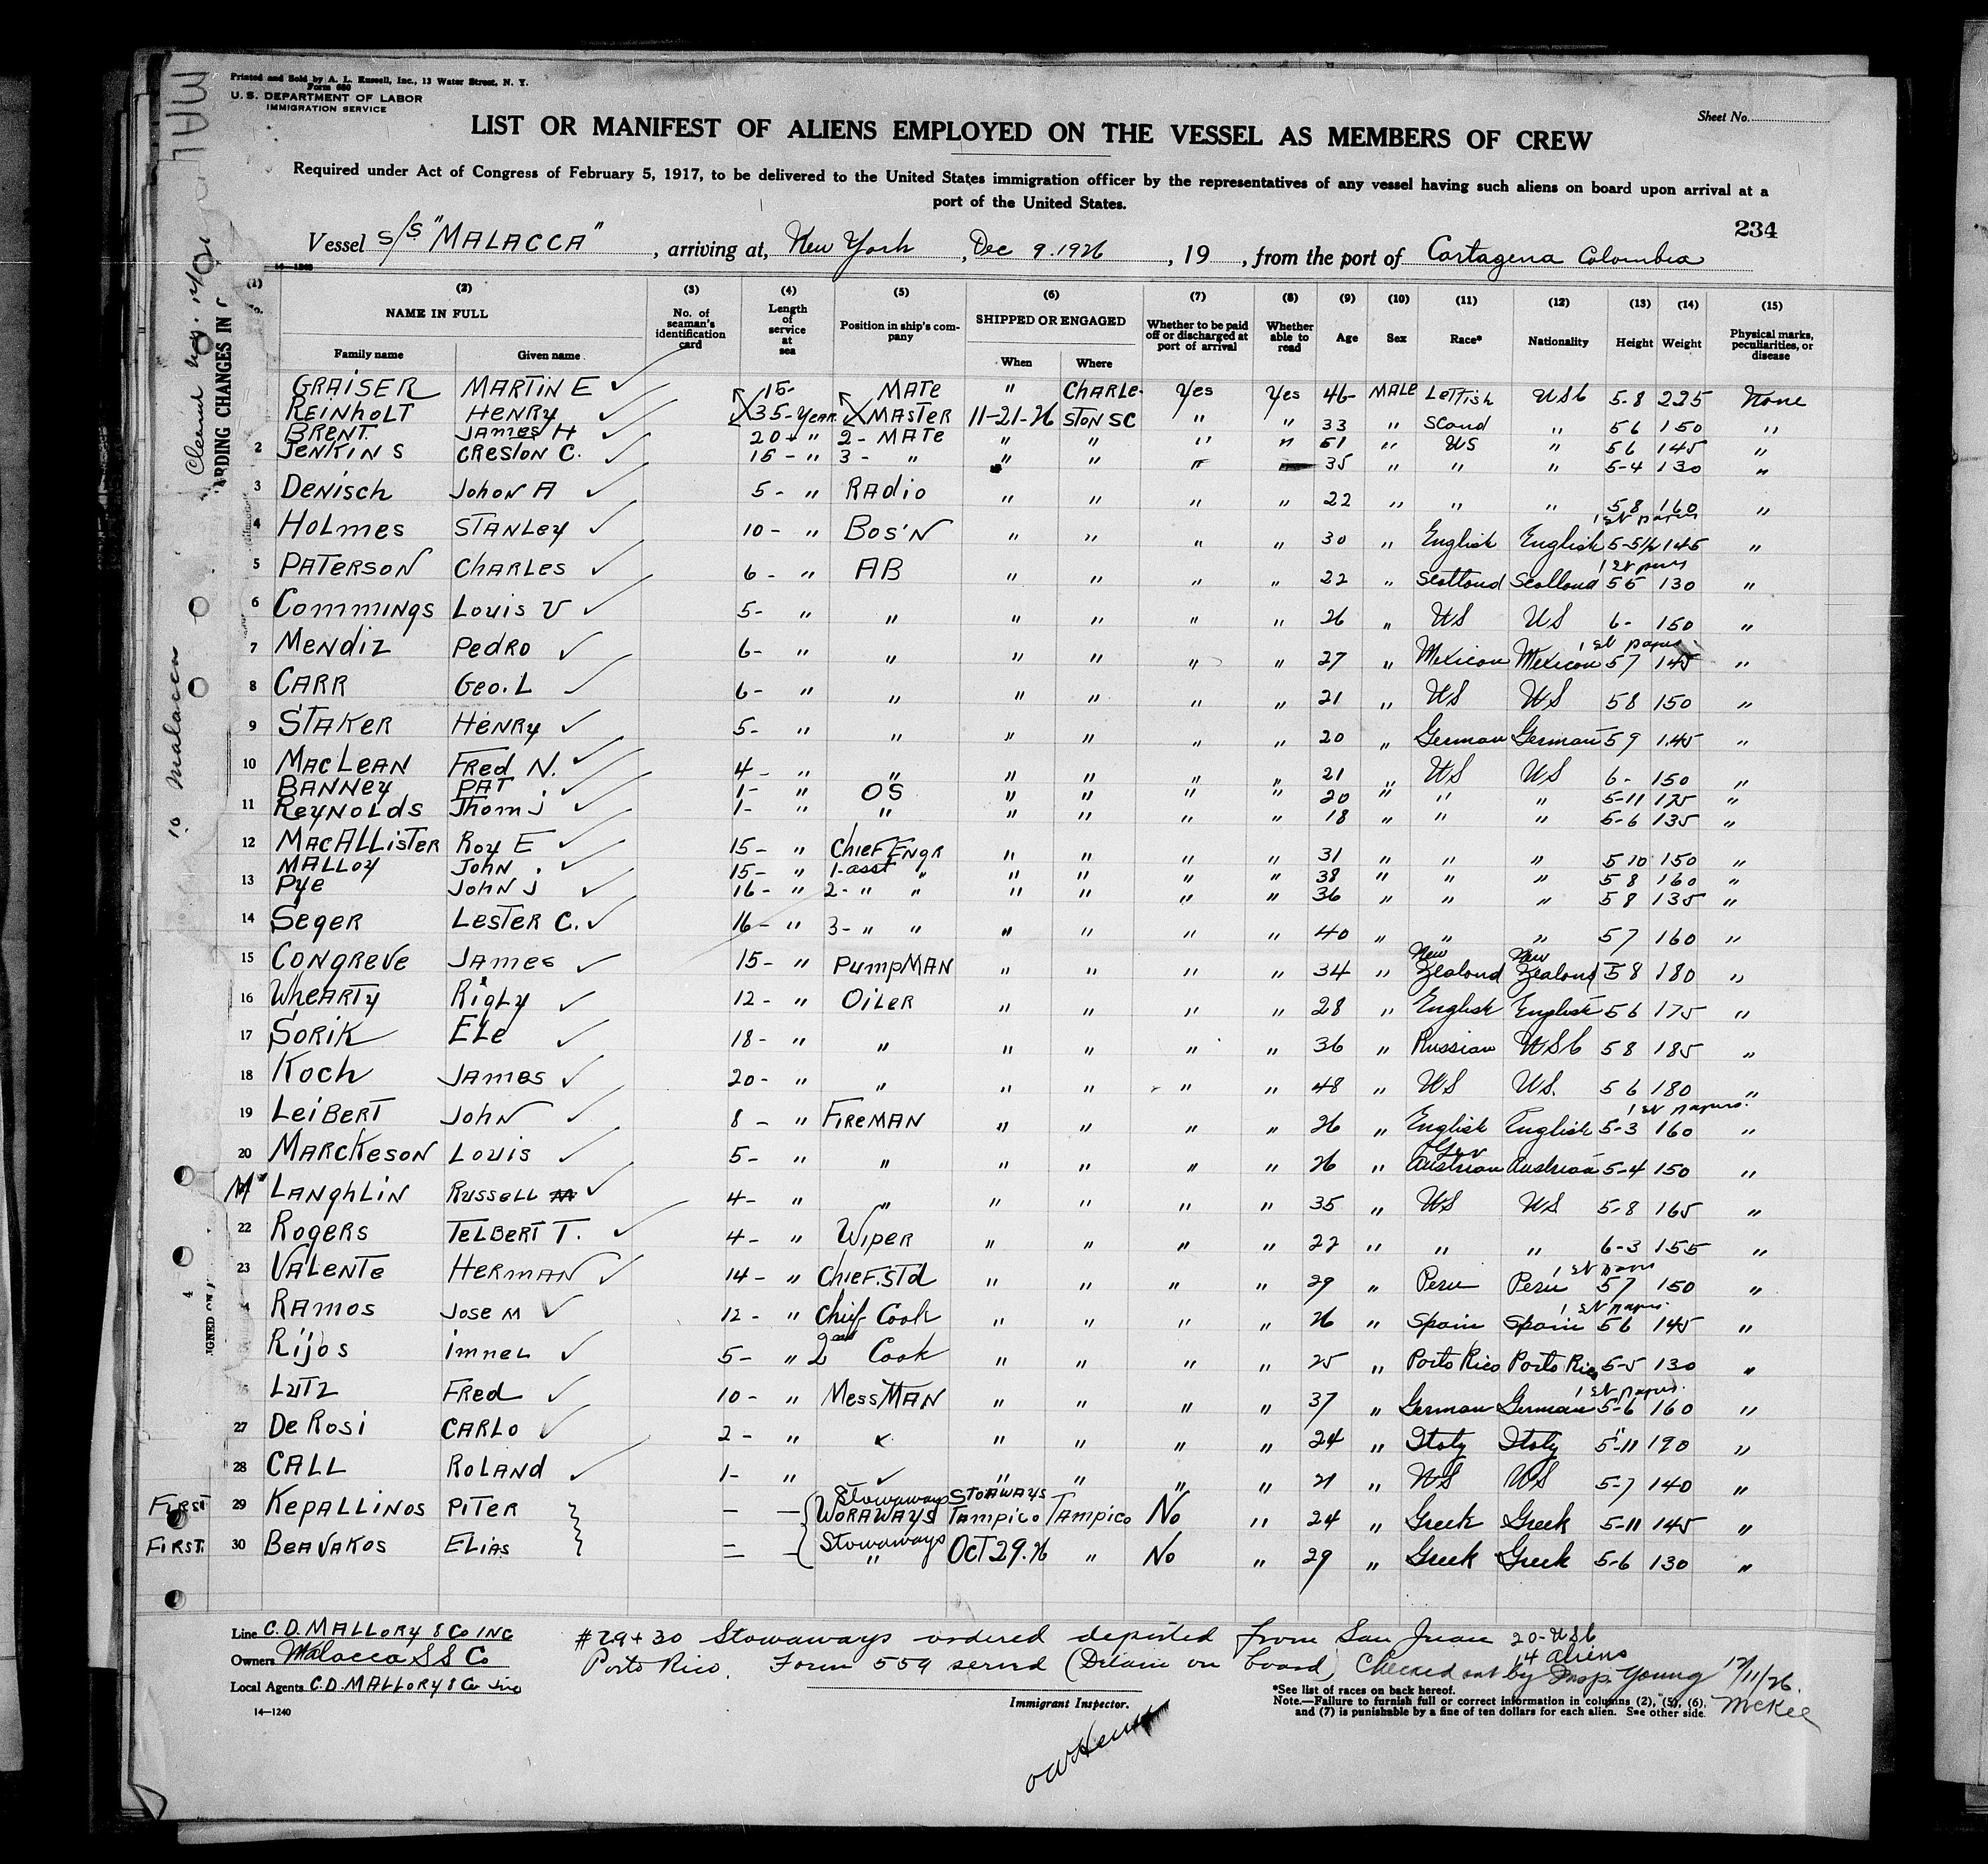 Printed and Sold by A. L. Russell, Inc., 13 Water Street, N. Y.
Form 680
U. S. DEPARTMENT OF LABOR
IMMIGRATION SERVICE
Sheet No.
LIST OR MANIFEST OF ALIENS EMPLOYED ON THE VESSEL AS MEMBERS OF CREW
Required under Act of Congress of February 5, 1917, to be delivered to the United States immigration officer by the representatives of any vessel having such aliens on board upon arrival at a
port of the United States.
234
Vessel S/S "MALACCA", arriving at, New York, Dec 9. 1926, 19 , from the port of Cartagena Colombia
14—1240
(1) (2) (3) (4) (5) (6) (7) (8) (9) (10) (11) (12) (13) (14) (15)
No. NAME IN FULL Family name Given name No. of seaman's identification card Length of service at sea Position in ship's company SHIPPED OR ENGAGED When Where Whether to be paid off or discharged at port of arrival Whether able to read Age Sex Race* Nationality Height Weight Physical marks, peculiarities, or disease
GRAISER MARTIN E ✓ 15- MATE " CHARLE- Yes Yes 46- MALE Lettish USC 5-8 225 None
REINHOLT HENRY ✓ 35-YEAR MASTER 11-21-26 STON SC " " 33 " Scand " 5 6 150 "
BRENT. JAMES H ✓ 20- " 2- MATE " " " " 51 " US " 5 6 145 "
2 JENKINS CRESTON C. ✓ 15- " 3- " " " " 35 " " " 5-4 130 "
3 DENISCH JOHON A ✓ 5- " RADIO " " " " 22 " " " 5 8 160 "
4 HOLMES STANLEY ✓ 10- " BOS'N " " " " 30 " English English 1st papers 5-5½ 145 "
5 PATERSON CHARLES ✓ 6- " AB " " " " 22 " Scotland Scotland 1st papers 5 5 130 "
6 COMMINGS LOUIS V ✓ 5- " " " " " " 26 " US US 6- 150 "
7 MENDIZ PEDRO ✓ 6- " " " " " " 27 " Mexican Mexican 1st papers 5 7 145 "
8 CARR GEO. L ✓ 6- " " " " " " 21 " US US 5 8 150 "
9 STAKER HENRY ✓ 5- " " " " " " 20 " German German 5 9 145 "
10 MACLEAN FRED N. ✓ 4- " " " " " " 21 " US US 6- 150 "
BANNEY PAT ✓ 1- " OS " " " " 20 " " " 5-11 175 "
11 REYNOLDS THOM J ✓ 1- " " " " " " 18 " " " 5-6 135 "
12 MACALLISTER ROY E ✓ 15- " CHIEF ENGR " " " " 31 " " " 5 10 150 "
MALLOY JOHN . ✓ 15- " 1-asst " " " " " 38 " " " 5 8 160 "
13 PYE JOHN J ✓ 16- " 2- " " " " " " 36 " " " 5 8 135 "
14 SEGER LESTER C. ✓ 16- " 3- " " " " " " 40 " " " 5 7 160 "
15 CONGREVE JAMES ✓ 15- " PUMPMAN " " " " 34 " New Zealand New Zealand 5 8 180 "
16 WHEARTY RIGLY ✓ 12- " OILER " " " " 28 " English English 5 6 175 "
17 SORIK ELE ✓ 18- " " " " " " 36 " Russian USC 5 8 185 "
18 KOCH JAMES ✓ 20- " " " " " " 48 " US US. 5 6 180 "
19 LEIBERT JOHN ✓ 8- " FIREMAN " " " " 26 " English English 1st papers. 5-3 160 "
20 MARCKESON LOUIS ✓ 5- " " " " " " 26 " Ger Austrian Austrian 5-4 150 "
Mc LANGHLIN RUSSELL M ✓ 4- " " " " " " 35 " US US 5-8 165 "
22 ROGERS TELBERT T. ✓ 4- " WIPER " " " " 22 " " " 6-3 155 "
23 VALENTE HERMAN ✓ 14- " CHIEF. STD " " " " 29 " Peru Peru 1st papers 5 7 150 "
4 RAMOS JOSE M ✓ 12- " Chief Cook " " " " 26 " Spain Spain 1st papers. 5 6 145 "
RIJOS IMNEL ✓ 5- " 2nd Cook " " " " 25 " Porto Rico Porto Rico 5-5 130 "
26 LUTZ FRED ✓ 10- " MESSMAN " " " " 37 " German German 1st papers. 5-6 160 "
27 DE ROSI CARLO ✓ 2- " " " " " " 24 " Italy Italy 5-11 190 "
28 CALL ROLAND ✓ 1- " ✓ " " " " 21 " US US 5-7 140 "
FIRST 29 KEPALLINOS PITER — — Stowaways WORAWAYS STOAWAYS TAMPICO TAMPICO No " 24 " Greek Greek 5-11 145 "
FIRST. 30 BEAVAKOS ELIAS — — Stowaways " OCT 29. 26 " No " 29 " Greek Greek 5-6 130 "
Line C. D. MALLORY & CO INC
Owners Malacca S S Co
Local Agents C. D. MALLORY & Co Inc
14—1240
# 29 + 30 Stowaways ordered deported from San Juan
Porto Rico. Form 559 served (Detain on board)
20- USC
14 aliens
Checked out by Insp. Young 12/11/26.
McKee
Immigrant Inspector.
*See list of races on back hereof.
Note.—Failure to furnish full or correct information in columns (2), (5), (6),
and (7) is punishable by a fine of ten dollars for each alien. See other side.
MAL
RDING CHANGES IN
IGNED ON
10 Malacca